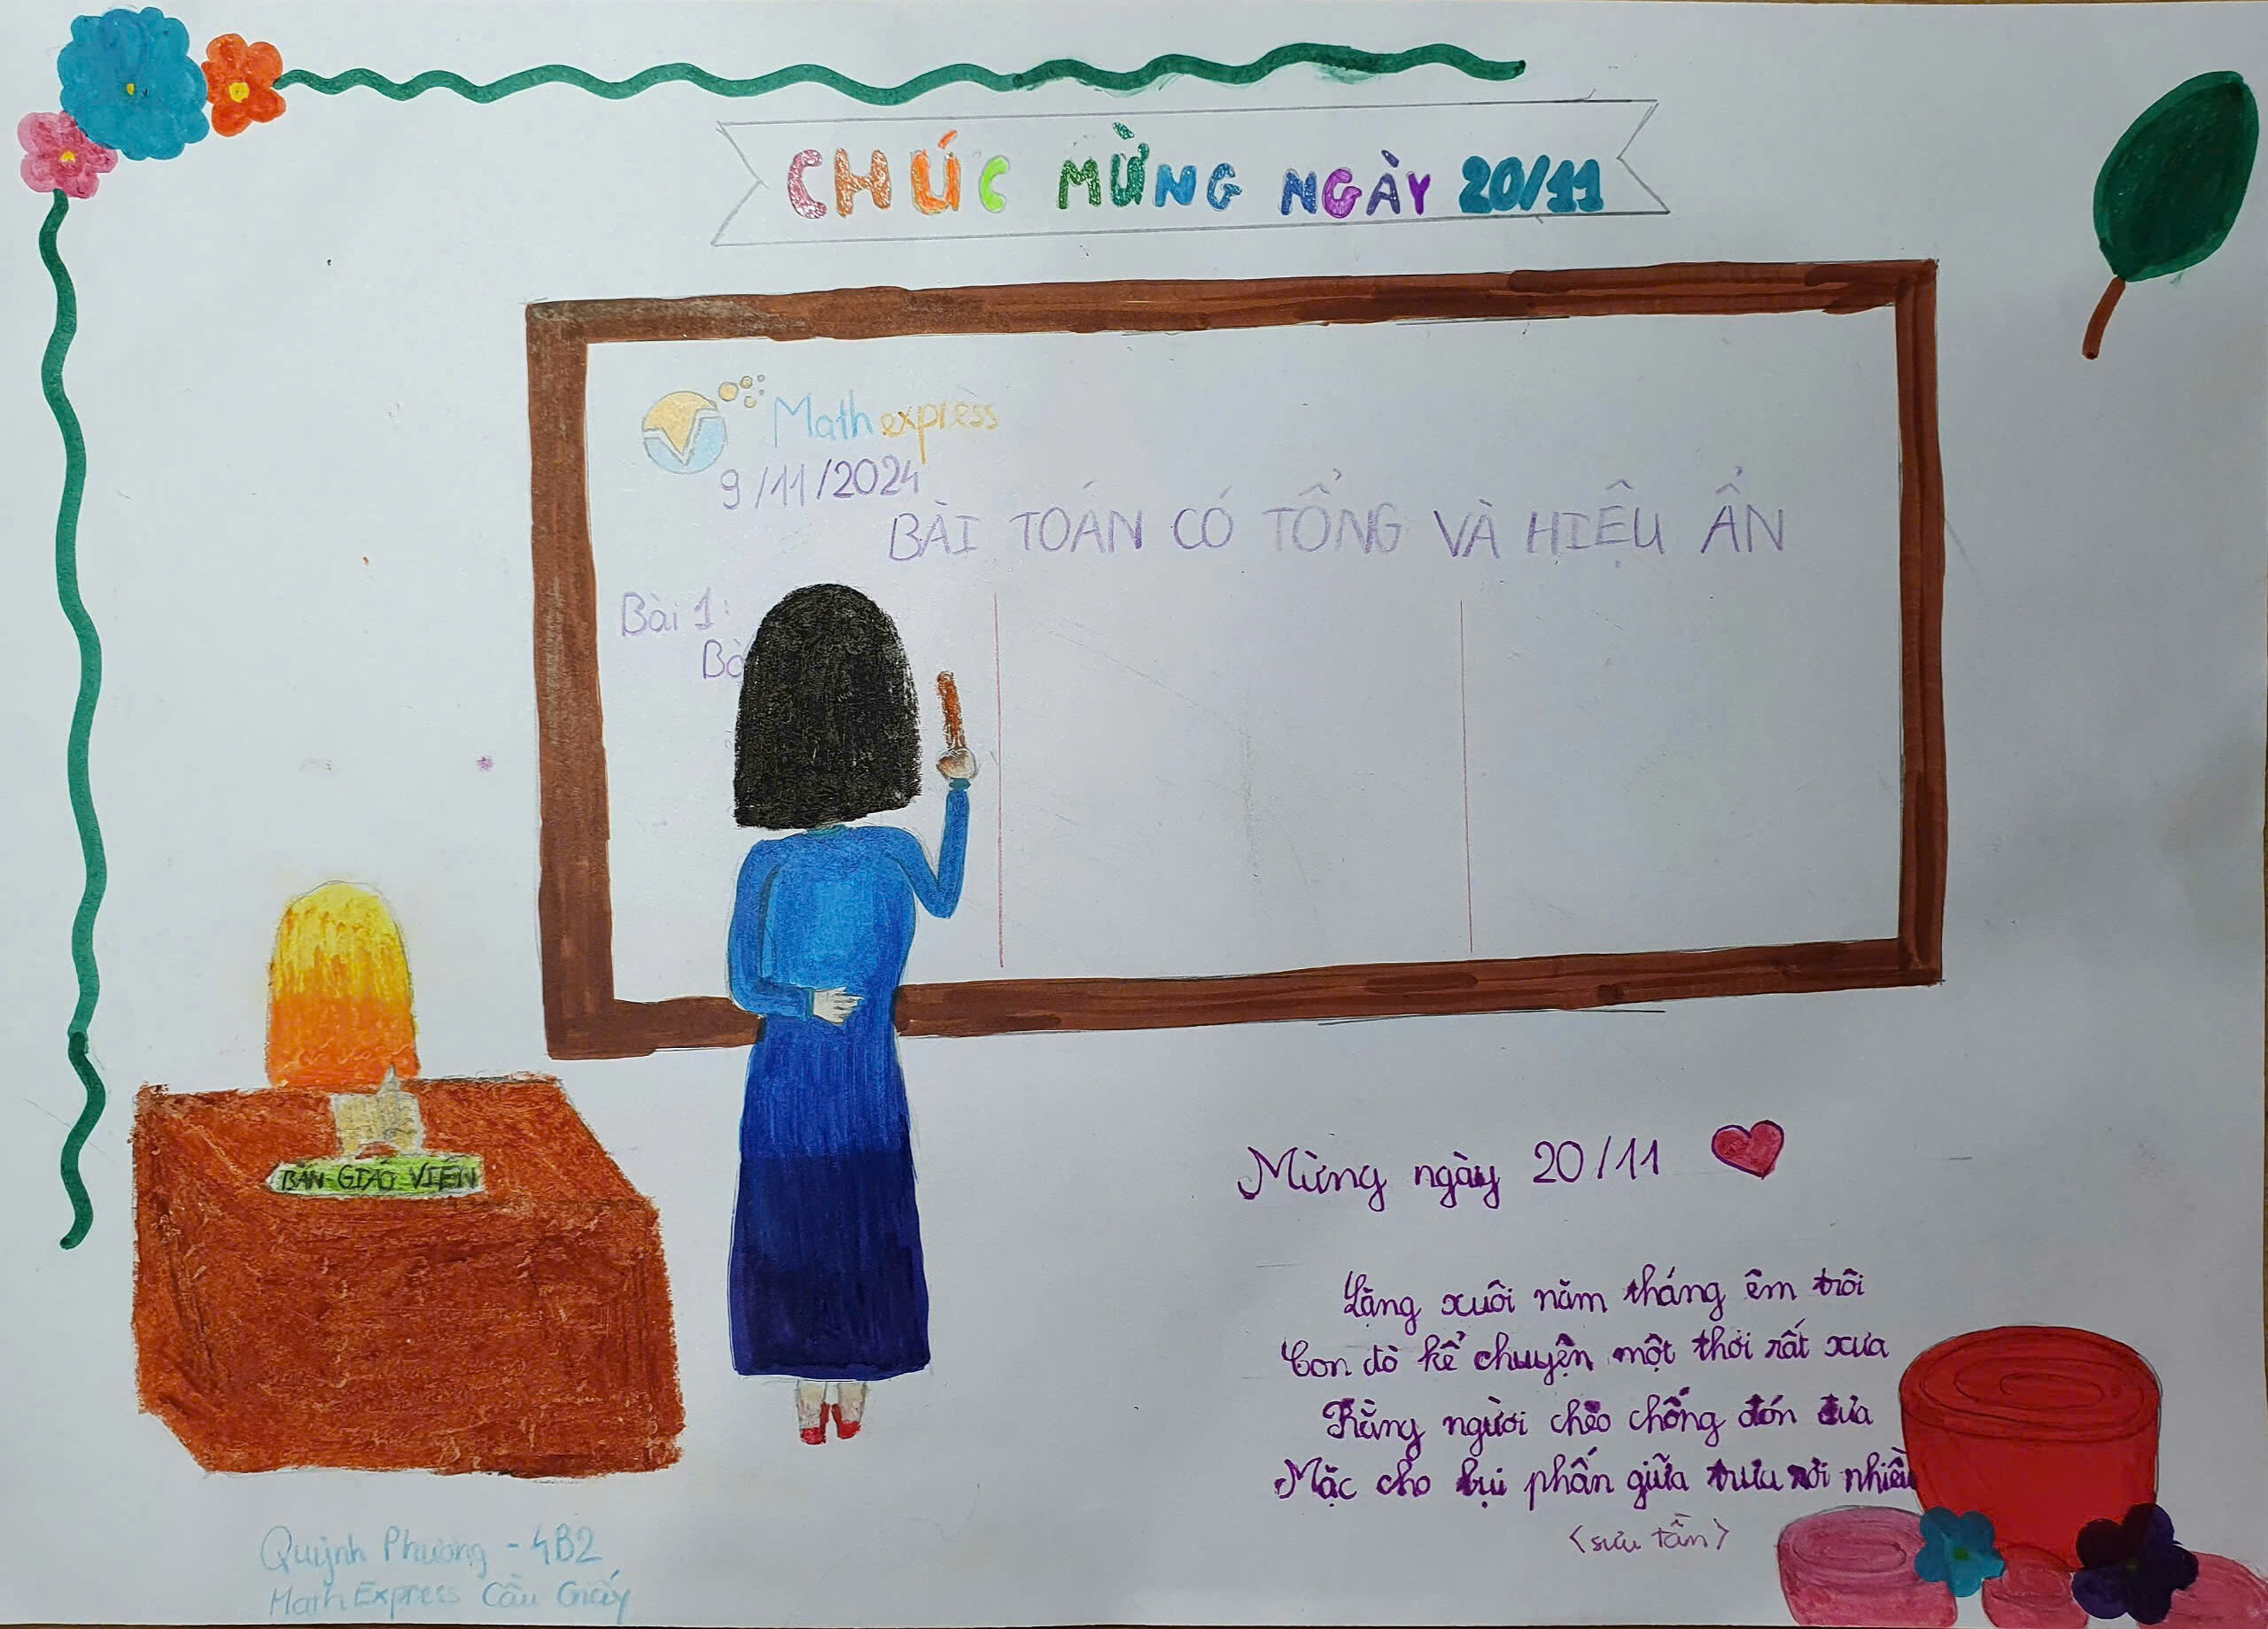 CHÚC MỪNG NGÀY 20/11
Math express
9/11/2024
BÀI TOÁN CÓ TỔNG VÀ HIỆU ẨN
Bài 1:
Bà
BÀN GIÁO VIÊN
Mừng ngày 20/11
Lặng xuôi năm tháng êm trôi
Con đò kể chuyện một thời rất xưa
Rằng người chèo chống đón đưa
Mặc cho bụi phấn giữa trưa rơi nhiều
<sưu tầm>
Quỳnh Phương - 4B2
Math Express Cầu Giấy